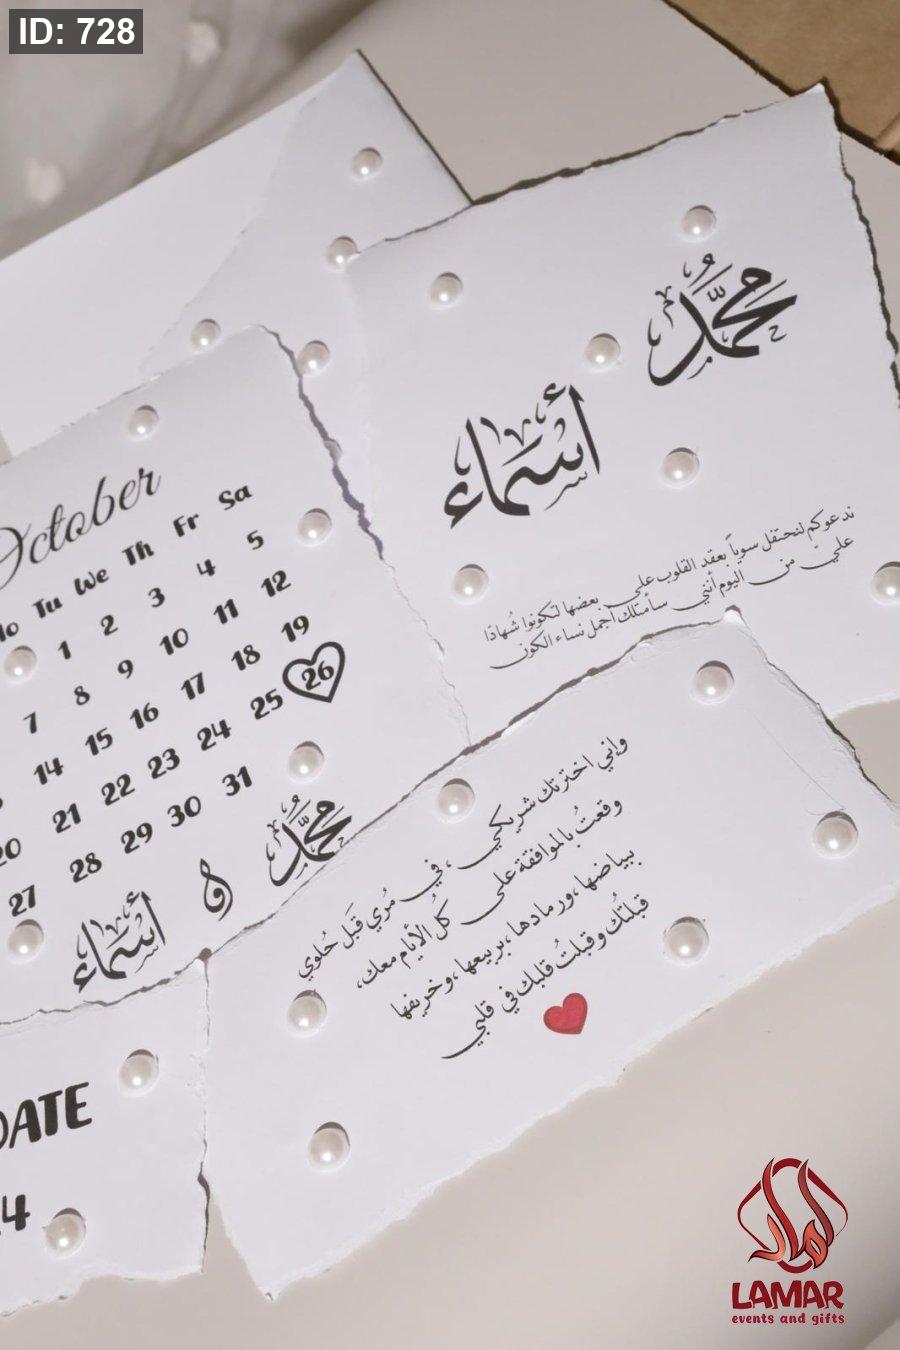 ID: 728
محمد
أسماء
ندعوكم لنحتفل سوياً بعقد القلوب على بعضها لتكونوا شهادًا
علي من اليوم أنني سأمتلك أجمل نساء الكون
October
Tu We Th Fr Sa
1 2 3 4 5
7 8 9 10 11 12
14 15 16 17 18 19
20 21 22 23 24 25 26
27 28 29 30 31
أسماء و محمد
وإني اخترتك شريكي، في مُري قَبَل حُلوي
وقعتُ بالموافقة على كُل الأيام معك،
ببياضها، ورمادها، بربيعها، وخريفها
قبلتُك وقبلتُ قلبك في قلبي
DATE
لمار
LAMAR
events and gifts